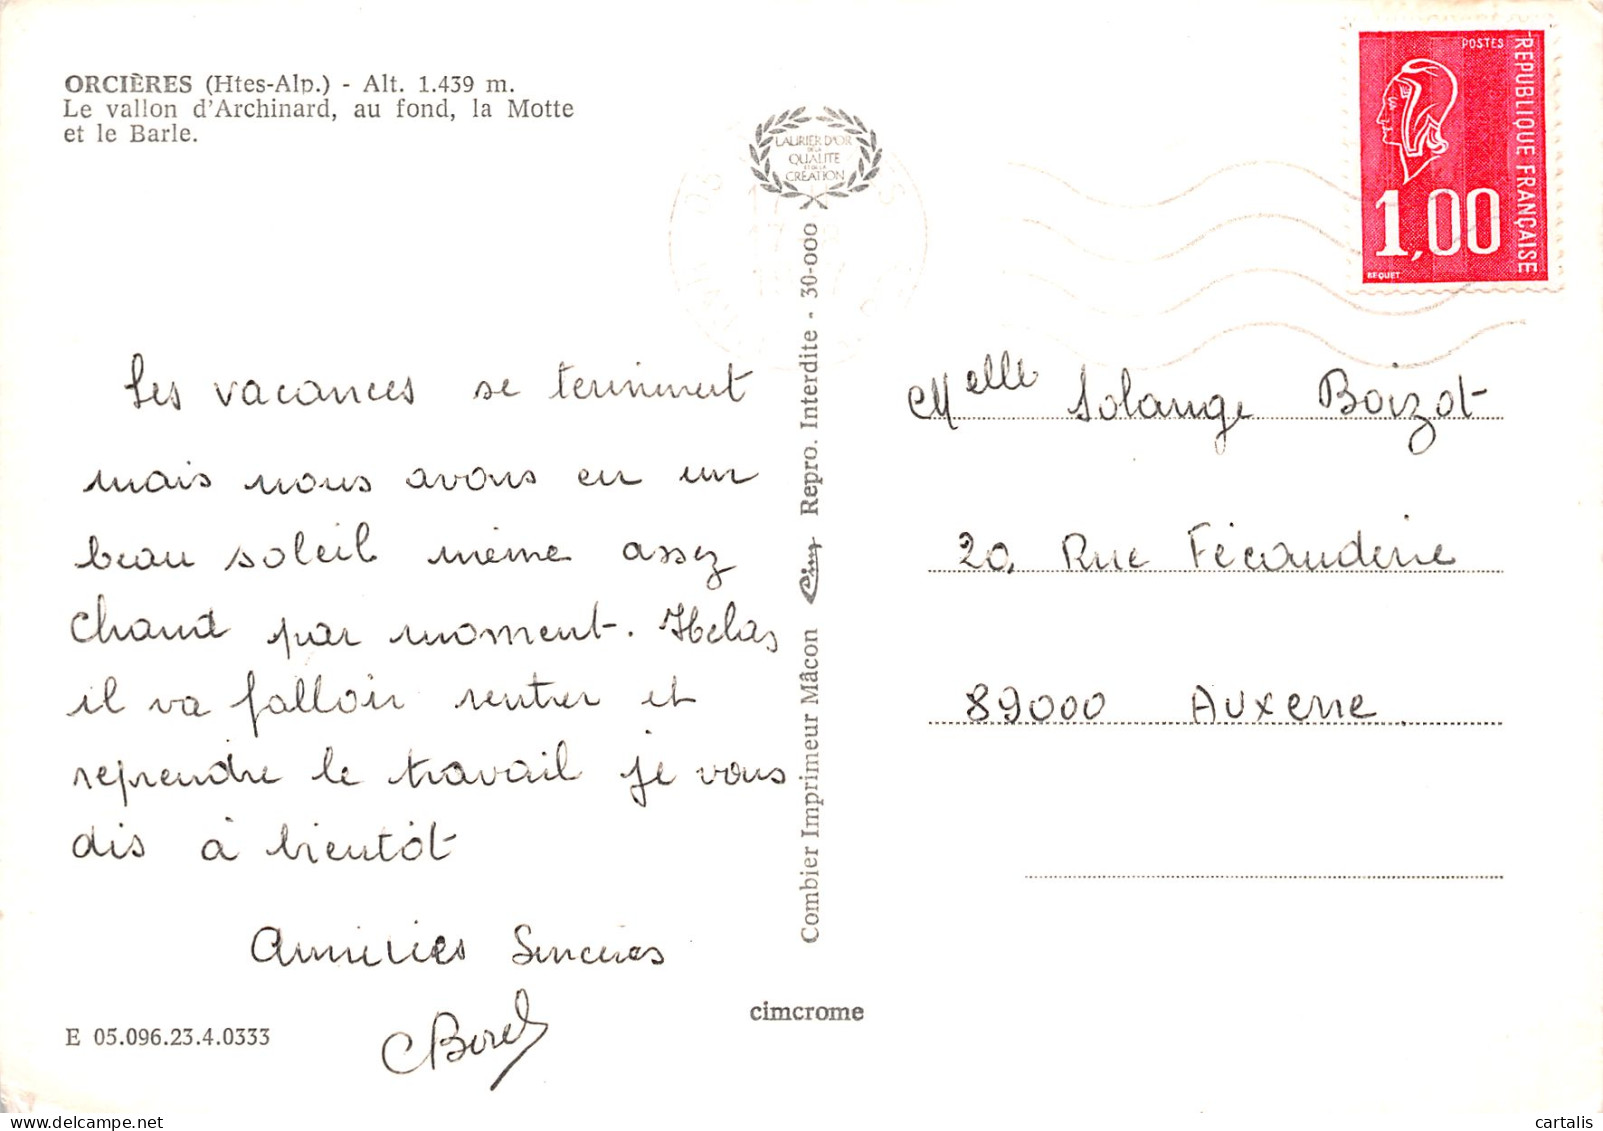 ORCIÈRES (Htes-Alp.) - Alt. 1.439 m.
Le vallon d'Archinard, au fond, la Motte
et le Barle.
LAURIER D'OR
DE LA
QUALITE
ET DE LA
CRÉATION
POSTES
REPUBLIQUE FRANÇAISE
1,00
BEQUET
Les vacances se terminent
mais nous avons eu un
beau soleil même assez
chaud par moment. Helas
il va falloir rentrer et
reprendre le travail je vous
dis à bientôt
Amitiés Sincères
CBorel
Melle Solange Boizot
20, Rue Fécauderie
89000 Auxerre.
Combier Imprimeur Mâcon Cim Repro. Interdite - 30-000
cimcrome
E 05.096.23.4.0333
cartalis
www.delcampe.net